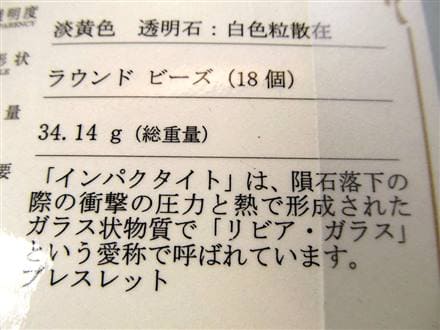 透明度 淡黄色　透明石：白色粒散在
PARENCY
形状 ラウンド ビーズ（18個）
LE
量 34.14 g（総重量）
要 「インパクタイト」は、隕石落下の
際の衝撃の圧力と熱で形成された
ガラス状物質で「リビア・ガラス」
という愛称で呼ばれています。
ブレスレット